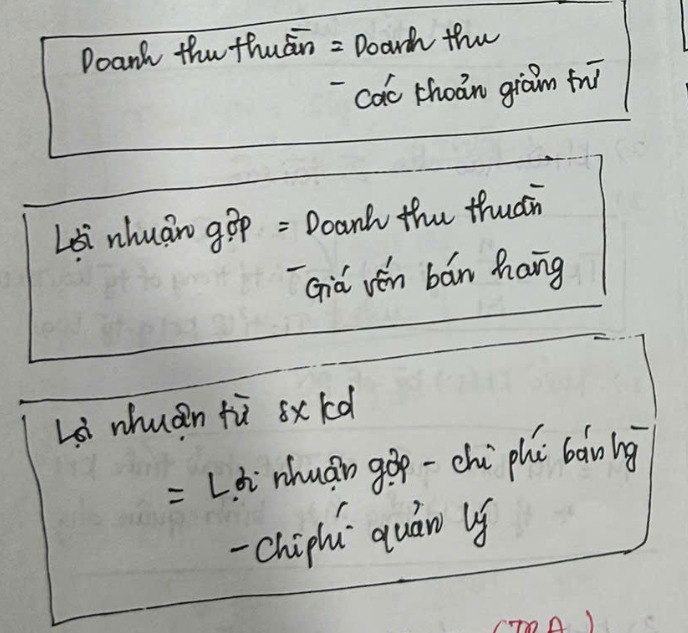 Doanh thu thuần = Doanh thu
- các khoản giảm trừ
Lợi nhuận gộp = Doanh thu thuần
- Giá vốn bán hàng
Lợi nhuận từ sx kd
= Lợi nhuận gộp - chi phí bán hg
- Chi phí quản lý